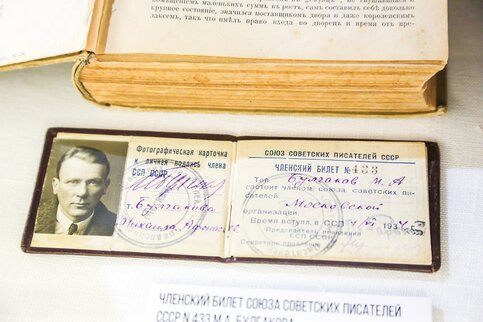 помѣщенiемъ маленькихъ суммъ въ ростъ, самъ составилъ себѣ довольно
крупное состоянiе, значился поставщикомъ двора и даже королевским
лаксемъ, такъ что имѣлъ право входа во дворецъ и время отъ вре-
Фотографическая карточка
и личная подпись члена
ССП СССР
т. Булгакова
Михаила
СОЮЗ СОВЕТСКИХ ПИСАТЕЛЕЙ СССР
ЧЛЕНСКИЙ БИЛЕТ № 433
Тов. Булгаков М. А
состоит членом союза советских пи-
сателей Московской
организации
Время вступл. в ССП 1934
Председатель правления
ССП СССР
Секретарь правления
ЧЛЕНСКИЙ БИЛЕТ СОЮЗА СОВЕТСКИХ ПИСАТЕЛЕЙ
СССР N 433 М.А. БУЛГАКОВА